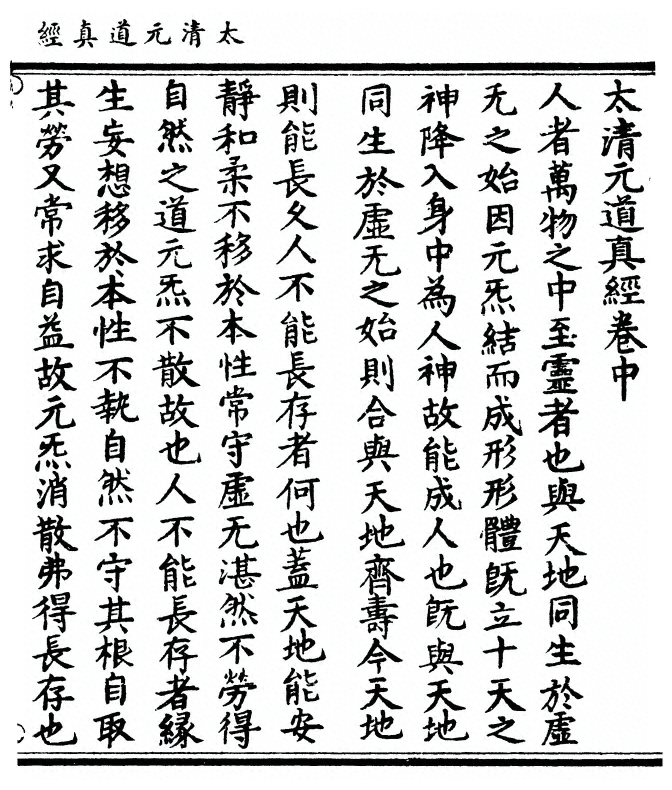 太清元道真經
太清元道真經卷中
人者萬物之中至靈者也與天地同生於虛
无之始因元炁結而成形形體旣立十天之
神降入身中為人神故能成人也旣與天地
同生於虛无之始則合與天地齊壽今天地
則能長久人不能長存者何也蓋天地能安
靜和柔不移於本性常守虛无湛然不勞得
自然之道元炁不散故也人不能長存者緣
生妄想移於本性不執自然不守其根自取
其勞又常求自益故元炁消散弗得長存也